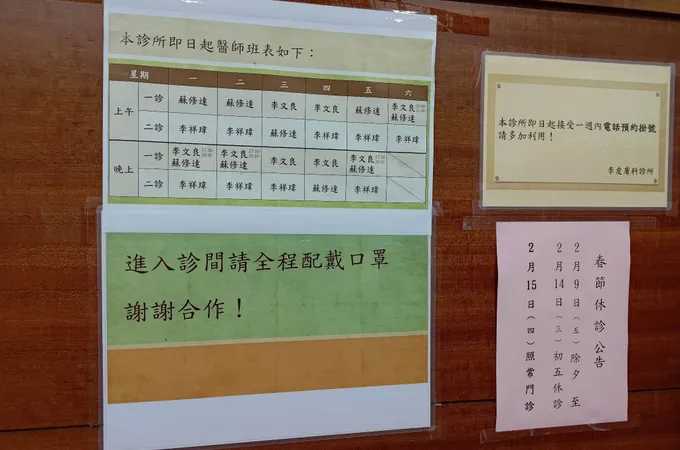 本診所即日起醫師班表如下：
星期 一 二 三 四 五 六
上午 一診 蘇修達 蘇修達 李文良 李文良 蘇修達 李文良 蘇修達
二診 李祥瑋 李祥瑋 蘇修達 李祥瑋 李祥瑋 李祥瑋
晚上 一診 李文良 蘇修達 李文良 蘇修達 李文良 李文良 李文良 蘇修達
二診 李祥瑋 李祥瑋 李祥瑋 蘇修達 李祥瑋
進入診間請全程配戴口罩
謝謝合作！
本診所即日起接受一週內電話預約掛號
請多加利用！
李皮膚科診所
春節休診公告
2月9日(五)除夕至
2月14日(三)初五休診
2月15日(四)照常門診